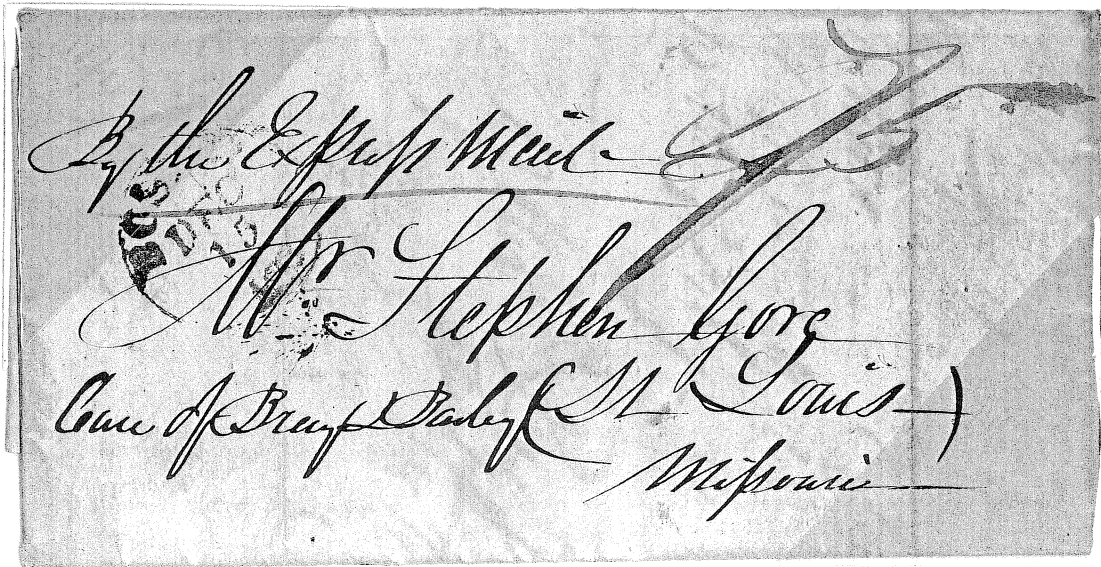 By the Express Mail
BOS
DEC
15
Mr Stephen Gore
Care of Bray & Bailey (St Louis)
Missouri